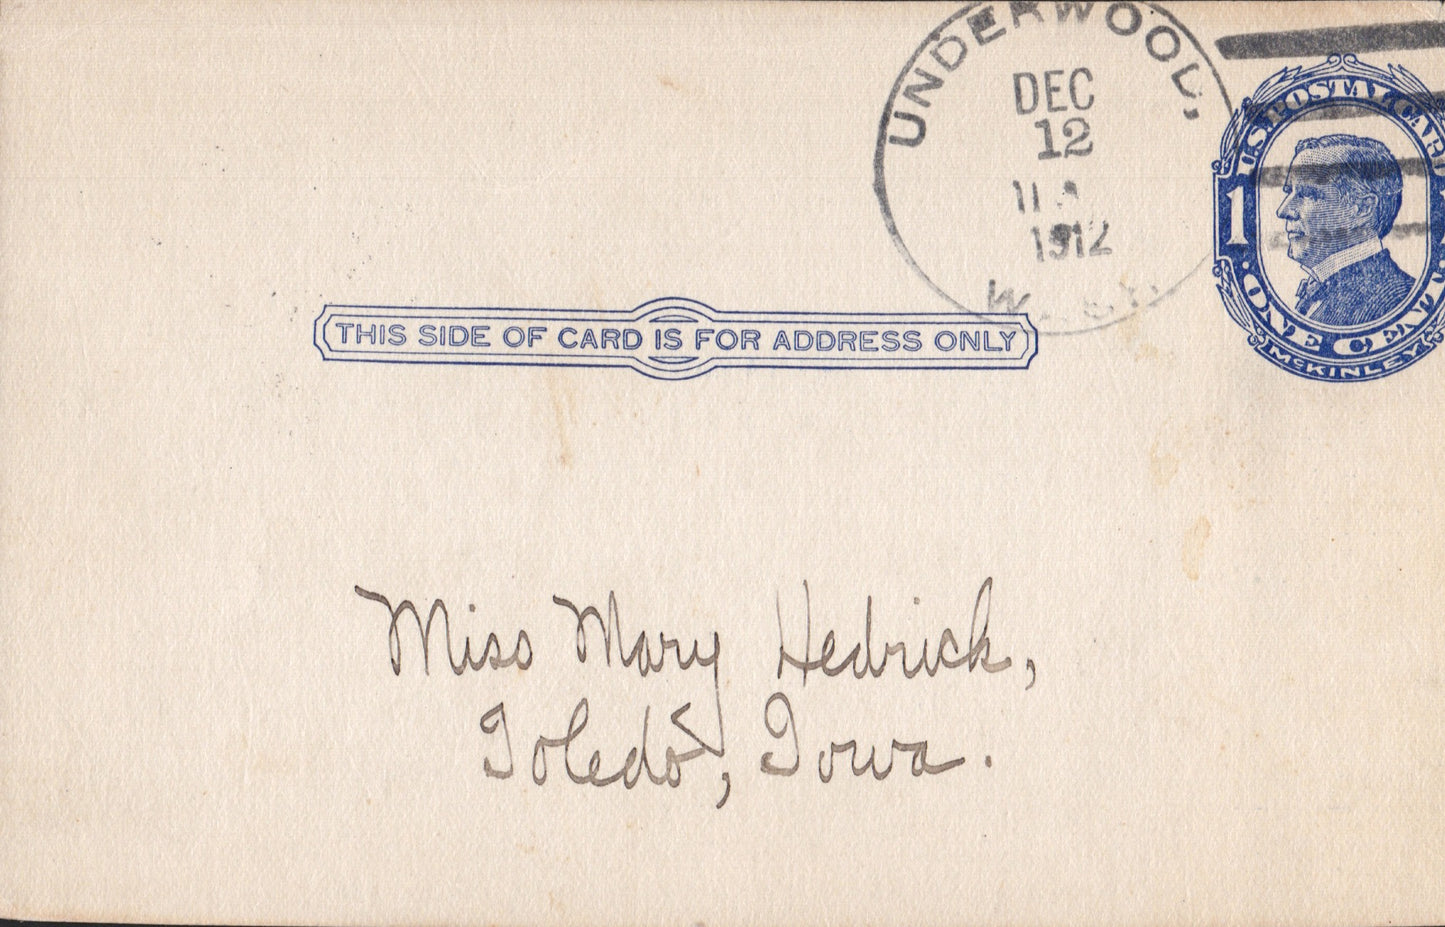 UNDERWOOD,
DEC
12
1912
U.S. POSTAL CARD
1
ONE CENT
McKINLEY
THIS SIDE OF CARD IS FOR ADDRESS ONLY
Miss Mary Hedrick,
Toledo, Iowa.